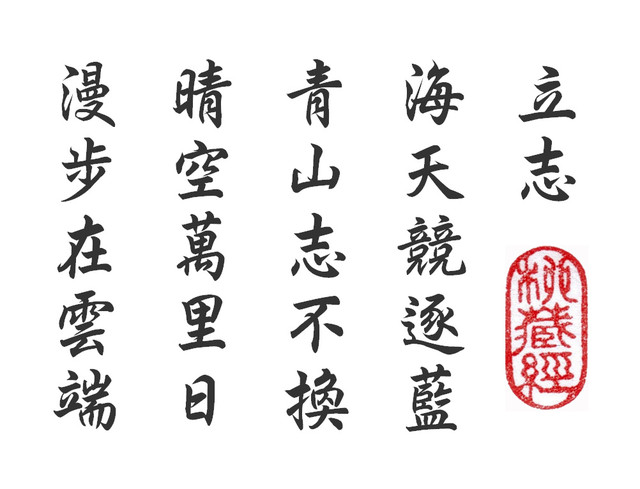 立志
海天競逐藍
青山志不換
晴空萬里日
漫步在雲端